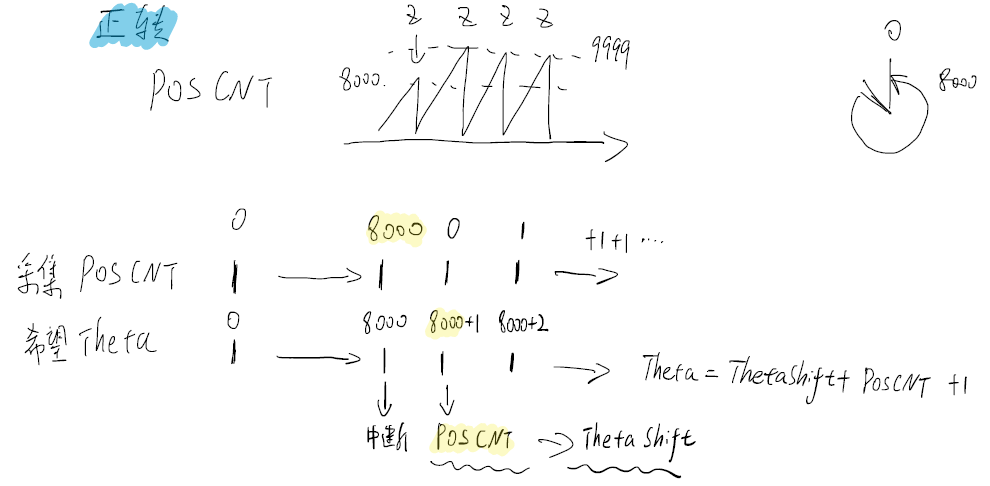 正转
Z Z Z Z
9999
8000.
POSCNT
0
8000
0 8000 0 1 +1+1 ····
采集 POSCNT
0 8000 8000+1 8000+2
希望 Theta
Theta = ThetaShift + POSCNT +1
中断 POSCNT Theta Shift